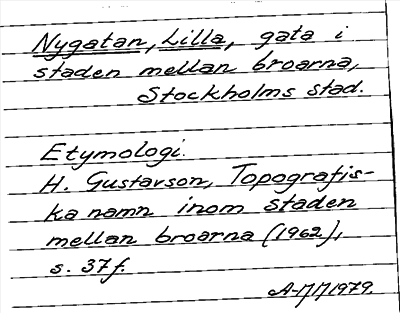 Nygatan, Lilla, gata i
staden mellan broarna,
Stockholms stad.
Etymologi.
H. Gustavson, Topografis-
ka namn inom staden
mellan broarna (1962),
s. 37 f.
1979.